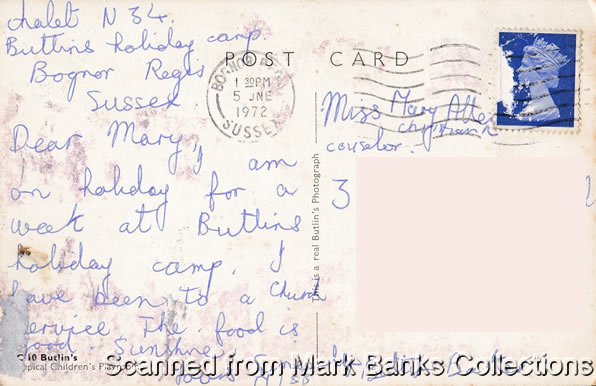 chalet N 34.
Butlins holiday camp
Bognor Regis
Sussex
Dear Mary,
I am
on holiday for a
week at Butlins
holiday camp. I
have been to a Church
service The food is
good. Sunshine
yours
POST CARD
BOGNOR
1 30PM
5 JNE
1972
SUSSEX
Miss Mary Allen
christian
counselor.
3
This is a real Butlin's Photograph
Butlin's
Tropical Children's
Scanned from Mark Banks Collections